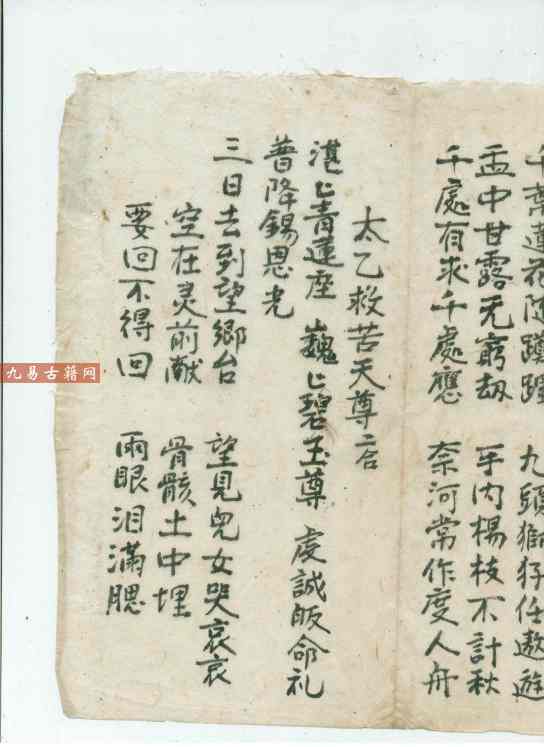 千葉蓮花随 九頭獅 任遨遊
盂中甘露无窮劫 手内楊枝不計秋
千處有求千處應 奈河常作度人舟
太乙救苦天尊 合
湛〻青蓮座 巍〻碧玉尊 虔誠皈命礼
普降錫恩光
三日去到望鄉台 望見兒女哭哀哀
空在灵前献 骨骸土中埋
要回不得回 兩眼泪满腮
九易古籍网